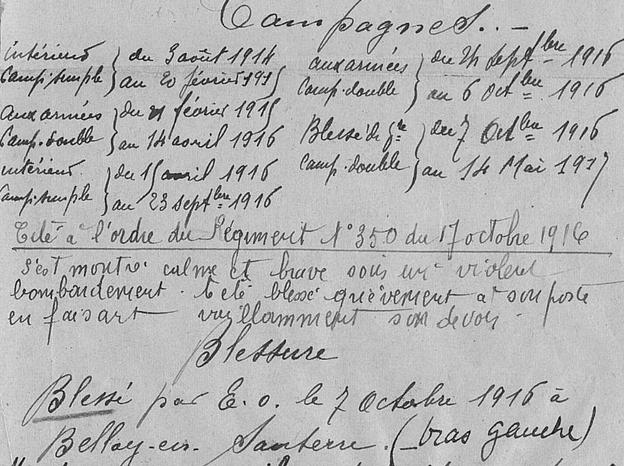 Campagnes..-
intérieur } du 3 août 1914
Camp. simple } au 20 février 1915
aux armées } du 21 février 1915
Camp. double } au 14 avril 1916
intérieur } du 15 avril 1916
Camp. simple } au 23 septbre 1916
aux armées } du 24 septbre 1916
Camp. double } au 6 Octbre 1916
Blessé de gre } du 7 Octbre 1916
Camp. double } au 14 Mai 1917
Cité à l'ordre du Régiment N° 350 du 17 octobre 1916
S'est montré calme et brave sous un violent
bombardement. A été blessé grièvement à son poste
en faisant vaillamment son devoir.
Blessure
Blessé par E. O. le 7 Octobre 1916 à
Belloy-en-Santerre. (bras gauche)